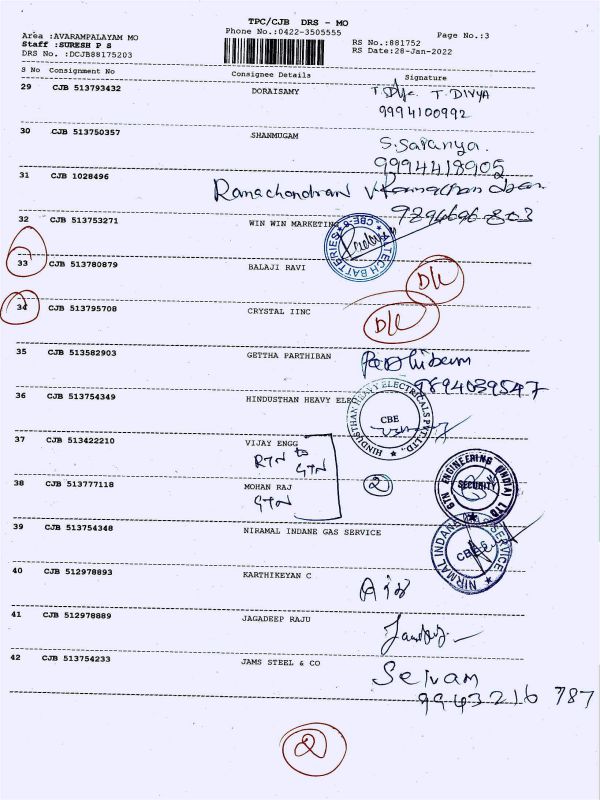 TPC/CJB DRS - MO
Area :AVARAMPALAYAM MO
Phone No.:0422-3505555
Page No.:3
Staff :SURESH P S
RS No.:881752
DRS No. :DCJB88175203
RS Date:28-Jan-2022
S No Consignment No Consignee Details Signature
29 CJB 513793432 DORAISAMY T. DIVYA
9994100992
30 CJB 513750357 SHANMUGAM S.Saranya.
9994418905
31 CJB 1028496 Ramachandran V Ramachandran
9894696803
32 CJB 513753271 WIN WIN MARKETING
33 CJB 513780879 BALAJI RAVI D/L
34 CJB 513795708 CRYSTAL IINC D/L
35 CJB 513582903 GETTHA PARTHIBAN Parthiban
9894039547
36 CJB 513754349 HINDUSTHAN HEAVY ELEC
HINDUSTHAN HEAVY ELECTRICALS PVT.LTD.,
CBE
37 CJB 513422210 VIJAY ENGG
RTN to GTN
38 CJB 513777118 MOHAN RAJ 2
GTN
GTN ENGINEERING (INDIA) LTD
SECURITY
39 CJB 513754348 NIRAMAL INDANE GAS SERVICE
40 CJB 512978893 KARTHIKEYAN C
41 CJB 512978889 JAGADEEP RAJU
42 CJB 513754233 JAMS STEEL & CO Selvam
9943216787
2